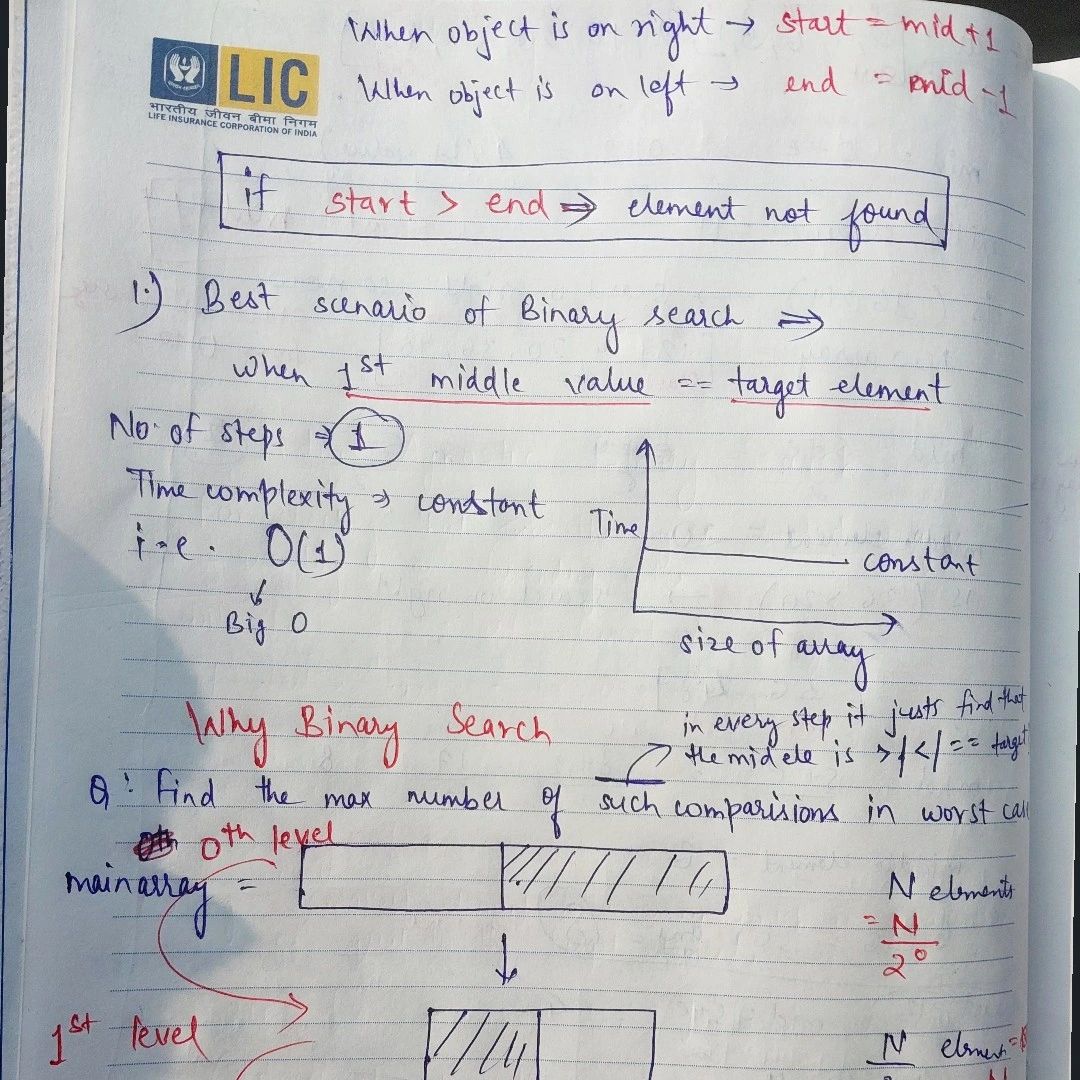 When object is on right → start = mid+1
LIC
भारतीय जीवन बीमा निगम
LIFE INSURANCE CORPORATION OF INDIA
When object is on left → end = mid-1
if start > end ⇒ element not found
1.) Best scenario of Binary search ⇒
when 1st middle value == target element
No. of steps ⇒ 1
Time complexity ⇒ constant
i.e. O(1)
Big O
Time
constant
size of array
Why Binary Search
in every step it justs find that
the mid ele is >/</== target
Q: Find the max number of such comparisions in worst
0th level
main array =
N elements
= N/2^0
1st level
N